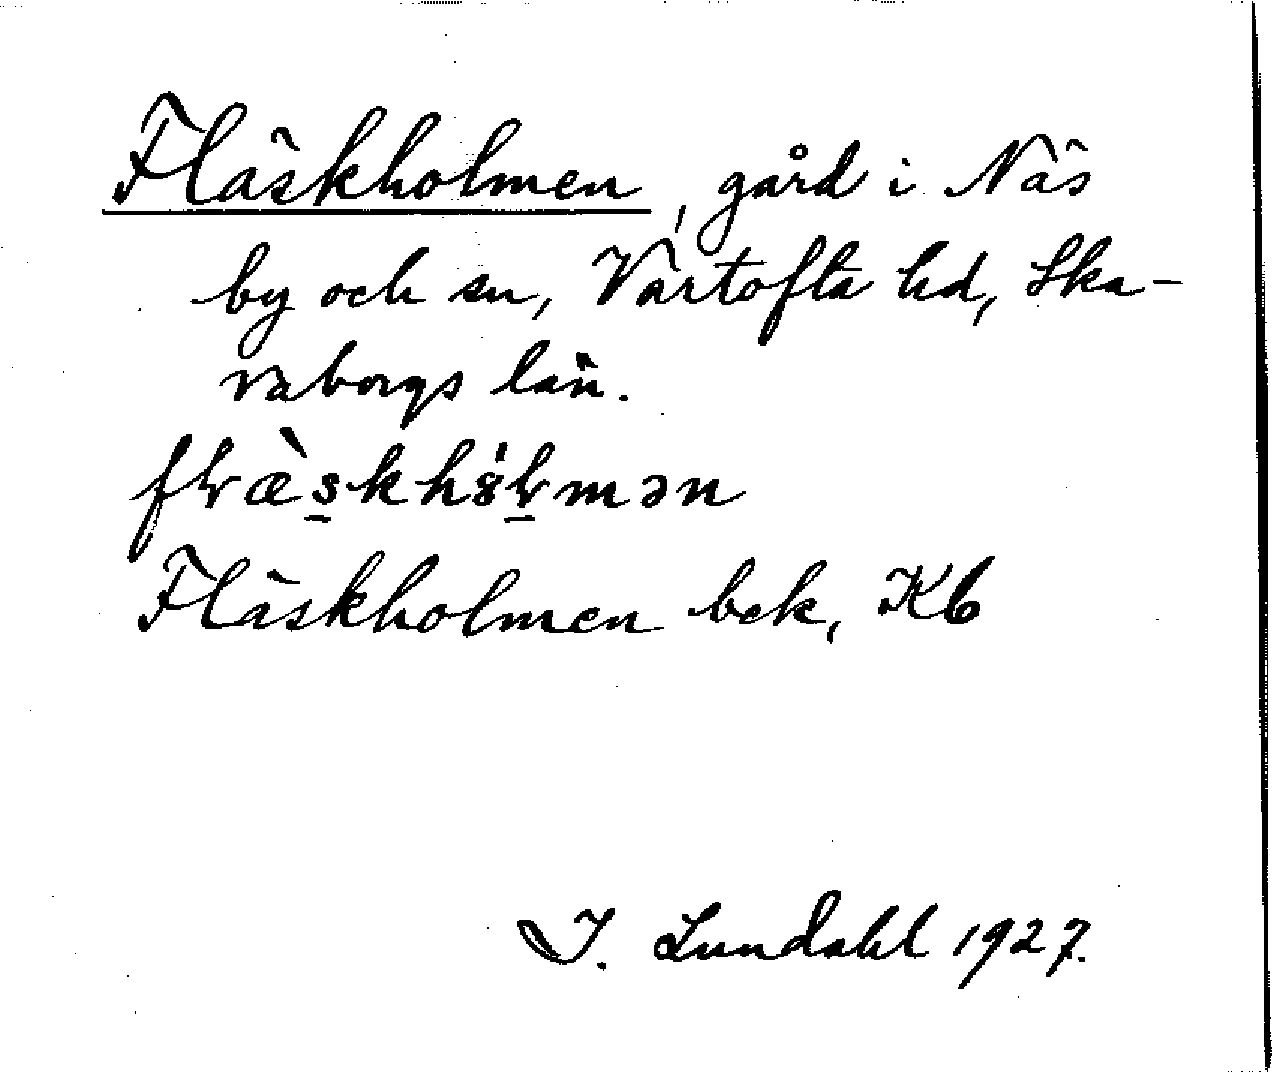 Fläskholmen, gård i Näs
by och sn, Vartofta hd, Ska-
raborgs län.
Fläskholmen bek, Kb
I. Lundahl 1927.